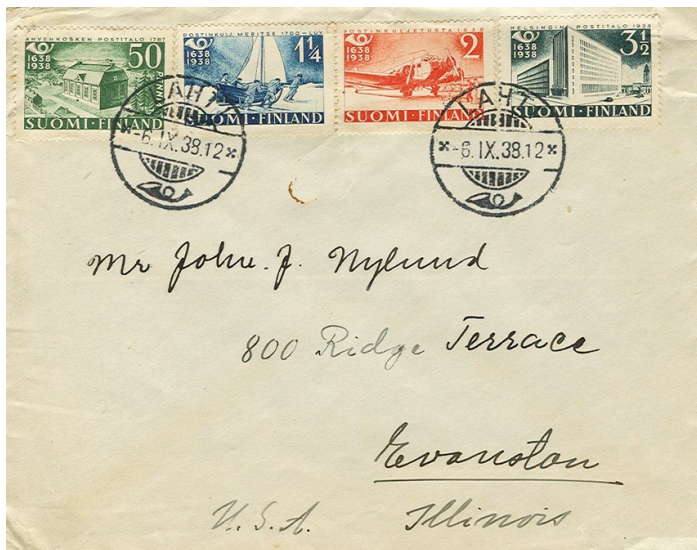 AHVENKOSKEN POSTITALO 1787
1638
1938
50
PENNIÄ
SUOMI-FINLAND
POSTINKULJ. MERITSE 1700-LUV
1638
1938
1¼
SUOMI-FINLAND
POSTINKULJETUSTA
1638
1938
2
SUOMI-FINLAND
HELSINGIN POSTITALO 1938
1638
1938
3½
SUOMI-FINLAND
LAHTI
-6.IX.38.12
LAHTI
-6.IX.38.12
Mr John. J. Nylund
800 Ridge Terrace
Evanston
U.S.A. Illinois